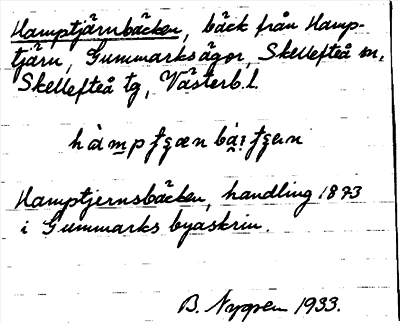 Hamptjärnbäcken, bäck från Hamp-
tjärn, Gummarksågor, Skellefteå sn,
Skellefteå tg, Västerb. l.
Hamptjernsbäcken, handling 1873
i Gummarks byaskrin.
B. Nygren 1933.